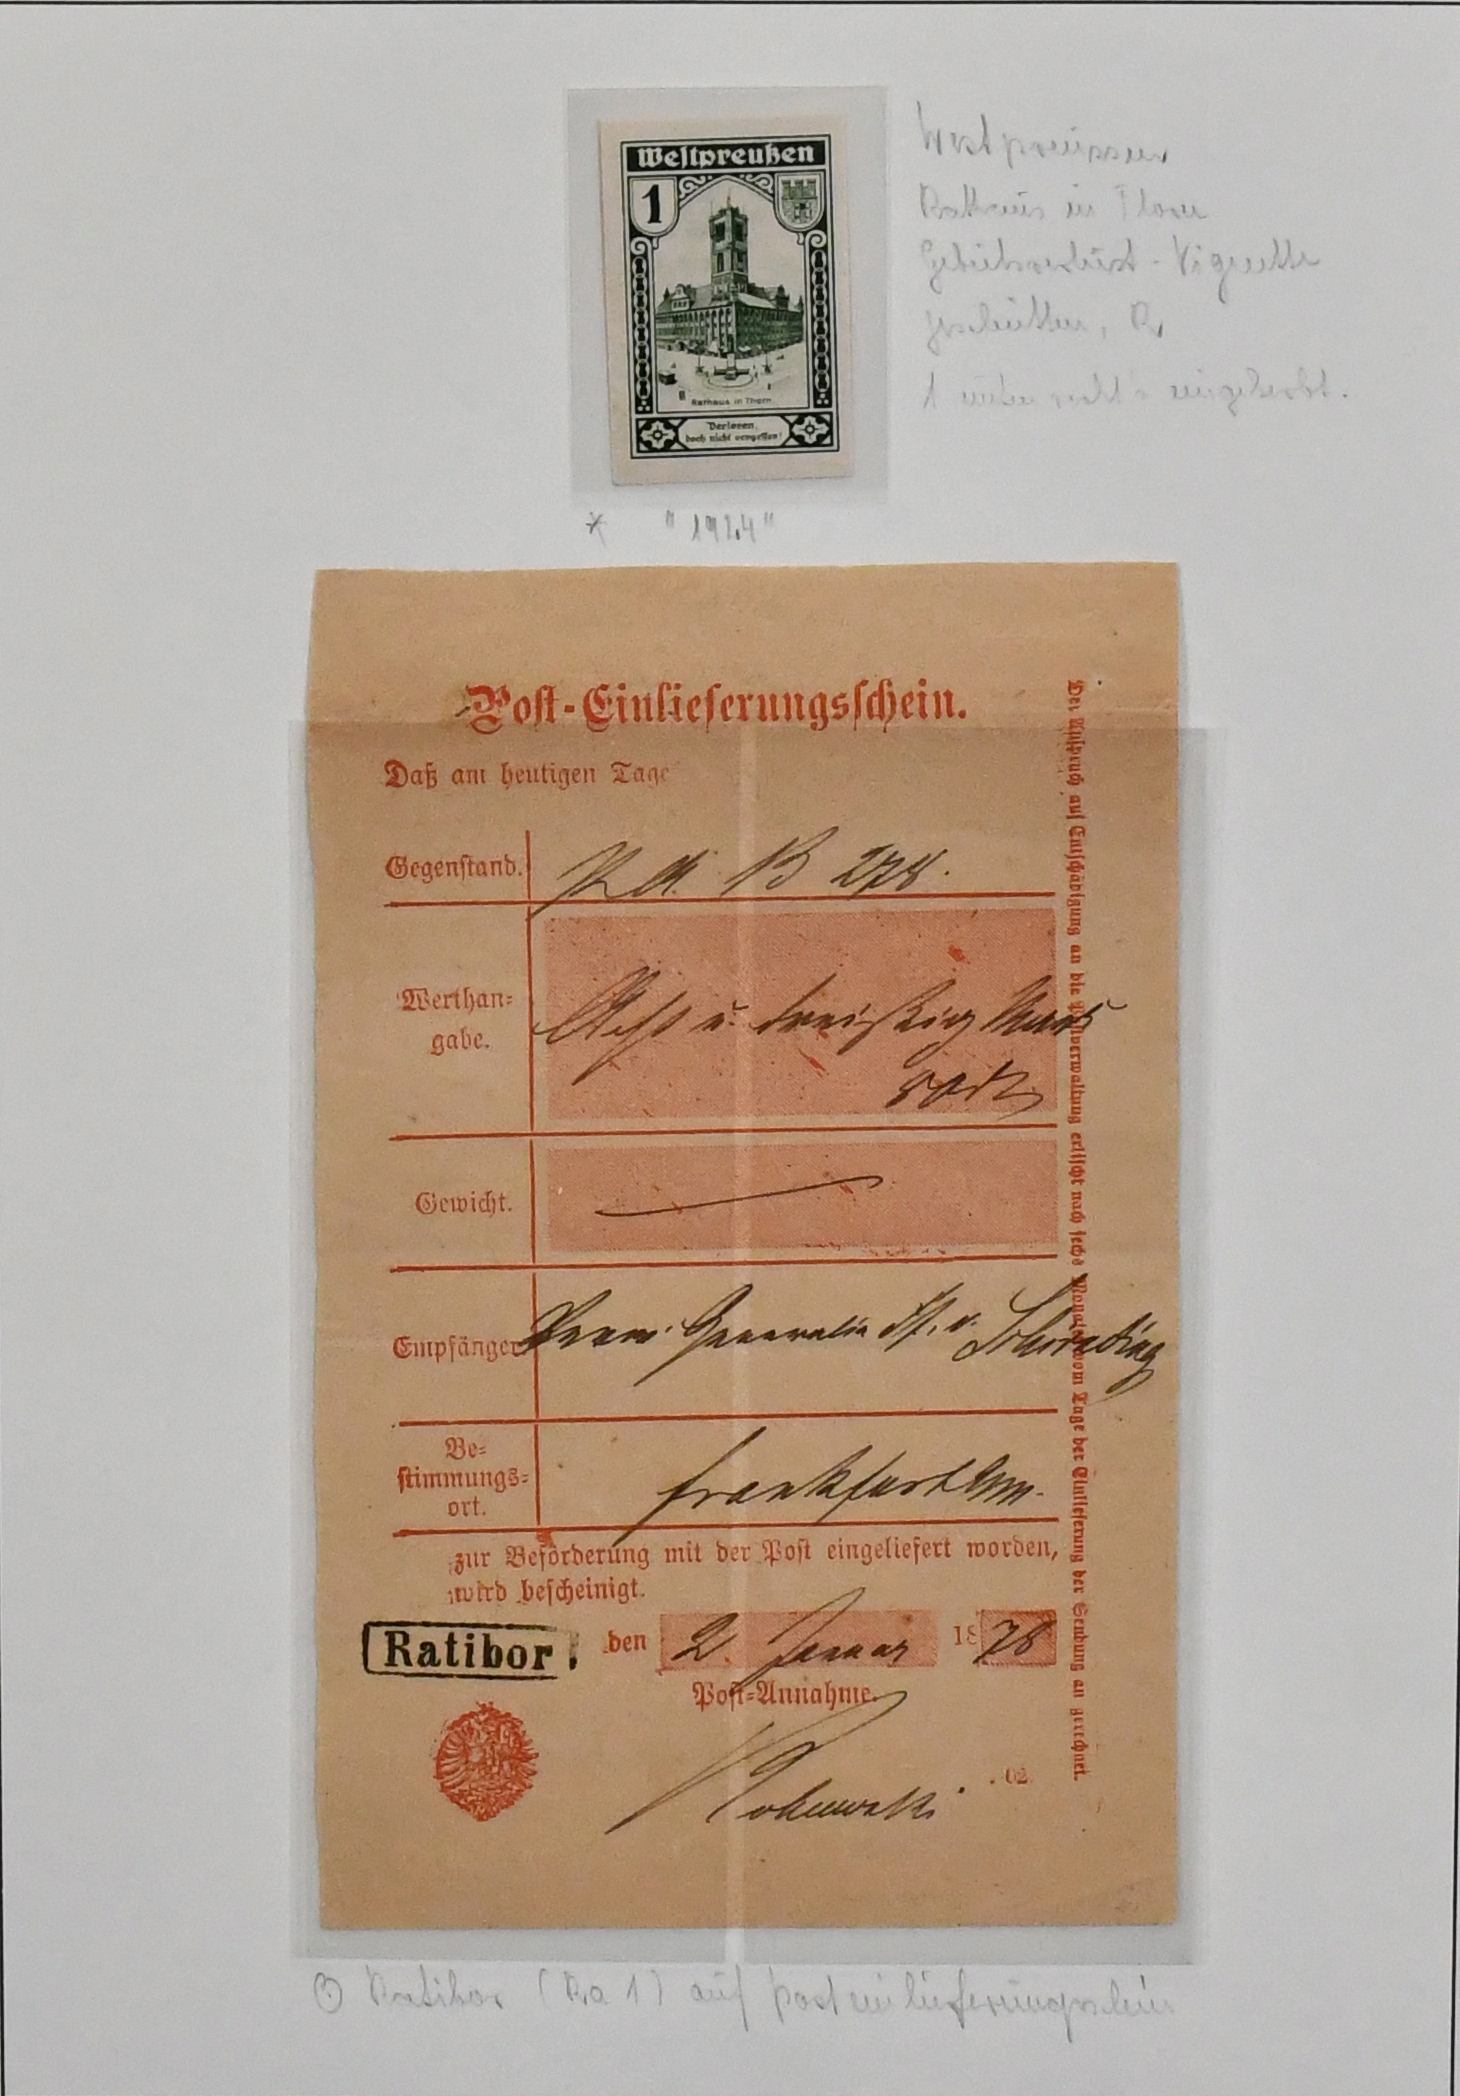 Westpreußen
1
Rathaus in Thorn
Verloren,
doch nicht vergessen!
Westpreussen
Rathaus in Thorn
Gebietsverlust-Vignette
geschnitten, R,
1 unten rechts eingekerbt.
* "1924"
Post-Einlieferungsschein.
Daß am heutigen Tage
Gegenstand. B 278.
Werthan-
gabe.
Acht u. dreißig Mark
Gewicht.
Empfänger
Be-
stimmungs-
ort.
Frankfurt a/M.
zur Beförderung mit der Post eingeliefert worden,
wird bescheinigt.
Ratibor den 2. Januar 1878
Post-Annahme.
02
Der Anspruch auf Entschädigung an die Postverwaltung erlischt nach sechs Monaten vom Tage der Einlieferung der Sendung an gerechnet.
Ratibor (Ra 1) auf Posteinlieferungsschein